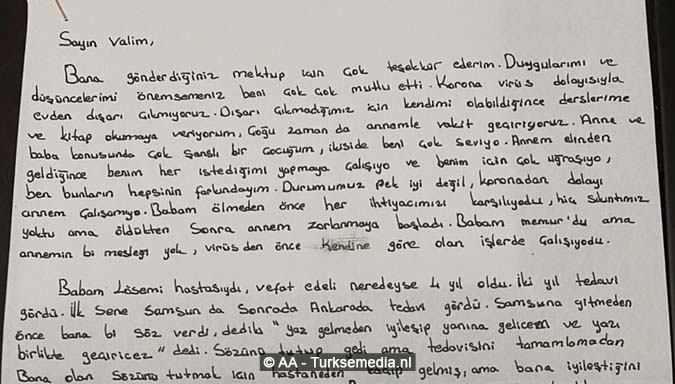 Sayın Valim,
Bana gönderdiğiniz mektup için çok teşekkür ederim. Duygularımı ve
düşüncelerimi önemsemeniz beni çok çok mutlu etti. Korona virüs dolayısıyla
evden dışarı çıkmıyoruz. Dışarı çıkmadığımız için kendimi olabildiğince derslerime
ve kitap okumaya veriyorum, Çoğu zaman da annemle vakit geçiriyoruz. Anne ve
baba konusunda çok şanslı bir çocuğum, ikiside beni çok seviyo. Annem elinden
geldiğince benim her istediğimi yapmaya çalışıyo ve benim için çok uğraşıyo,
ben bunların hepsinin farkındayım. Durumumuz pek iyi değil, koronadan dolayı
annem çalışamıyo. Babam ölmeden önce her ihtiyacımızı karşılıyodu, hiç sıkıntımız
yoktu ama öldükten sonra annem zorlanmaya başladı. Babam memur'du ama
annemin bi mesleği yok, virüsden önce kendine göre olan işlerde çalışıyodu.
Babam Lösemi hastasıydı, vefat edeli neredeyse 4 yıl oldu. İki yıl tedavi
gördü. İlk sene Samsun da sonrada Ankarada tedavi gördü. Samsuna gitmeden
önce bana bi söz verdi, dediki "yaz gelmeden iyileşip yanına gelicem ve yazı
birlikte geçiricez" dedi. Sözünü tutup geldi ama tedavisini tamamlamadan
Bana olan sözünü tutmak için hastaneden gelmiş, ama bana iyileştiğini
© AA - Turksemedia.nl